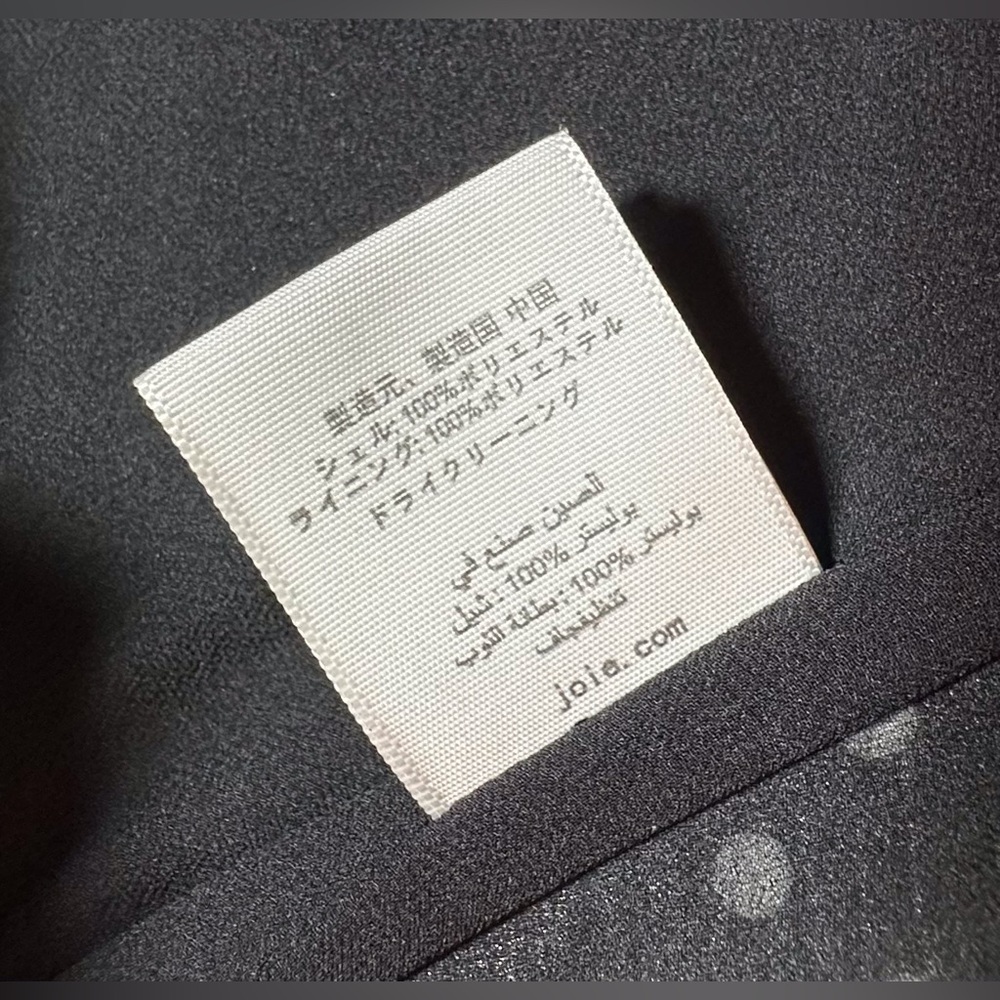 製造元、製造国 中国
シェル: 100%ポリエステル
ライニング: 100%ポリエステル
ドライクリーニング
الصين صنع في
بوليستر 100% : شيل
بوليستر 100% : بطانة الثوب
كنظيفجاف
joie.com